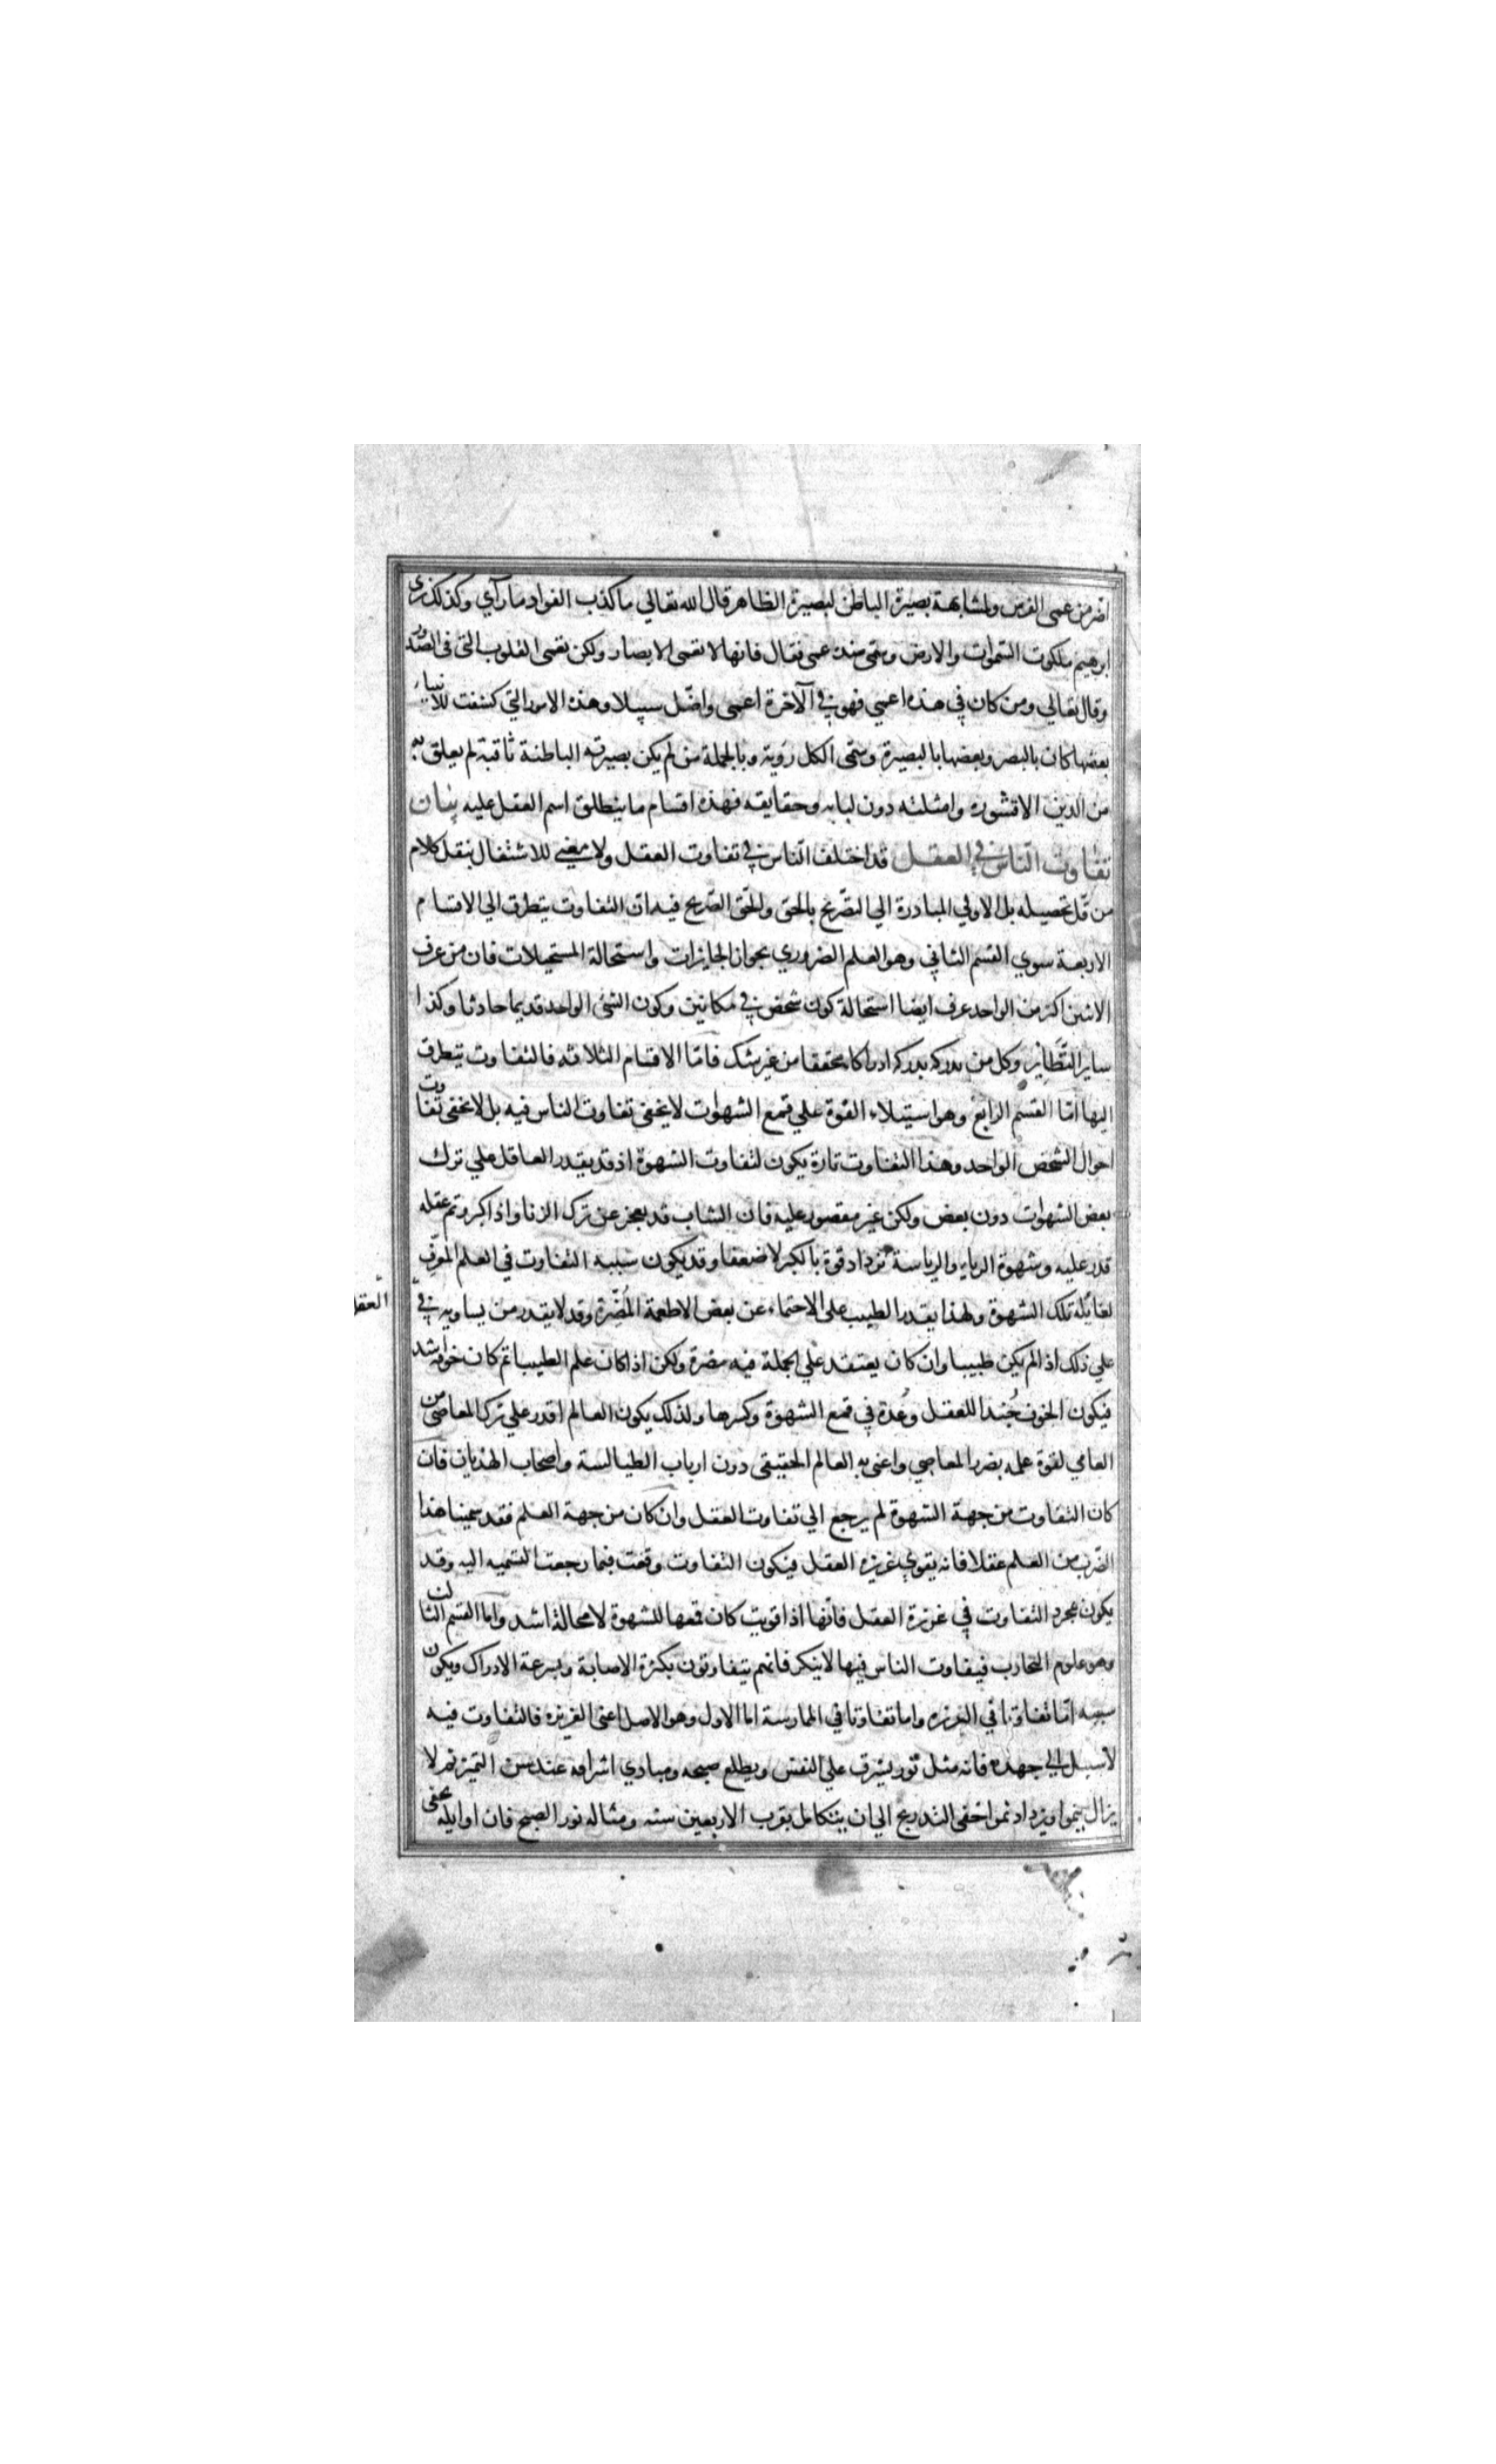 اضر من عمى الفرس ولمشابهة بصيرة الباطن لبصيرة الظاهر قال الله تعالي ما كذب الفواد ما رآي وكذلك نرى
ابرهيم ملكوت السموات والارض وسمى ضده عمى فقال فانها لا تعمى الابصار ولكن تعمى القلوب التى فى الصدور
وقال تعالي ومن كان في هذه اعمي فهو في الآخرة اعمى واضل سبيلا وهذه الامور التي كشفت للانبياء
بعضها كان بالبصر وبعضها بالبصيرة وسمى الكل رؤية وبالجملة من لم يكن بصيرته الباطنة ثاقبة لم يعلق به
من الدين الا قشوره وامثلته دون لبابه وحقايقه فهذه اقسام ما ينطلق اسم العقل عليه بيان
تفاوت الناس في العقل قد اختلف الناس في تفاوت العقل ولا معني للاشتغال بنقل كلام
من قل تحصيله بل الاولي المبادرة الي التصريح بالحق والحق الصريح فيه ان التفاوت يتطرق الي الاقسام
الاربعة سوي القسم الثاني وهو العلم الضروري بجواز الجايزات واستحالة المستحيلات فان من عرف
الاثنين اكثر من الواحد عرف ايضا استحالة كون شخص في مكانين وكون الشئ الواحد قديما حادثا وكذا
ساير النظاير وكل من يدركه يدركه ادراكا محققا من غير شك فاما الاقسام الثلاثه فالتفاوت يتطرق
اليها اما القسم الرابع وهو استيلاء القوة علي قمع الشهوات لا يخفى تفاوت الناس فيه بل لا يخفى تفاوت
احوال الشخص الواحد وهذا التفاوت تارة يكون لتفاوت الشهوة اذ قد يقدر العاقل علي ترك
بعض الشهوات دون بعض ولكن غير مقصور عليه فان الشاب قد يعجز عن ترك الزنا واذا كبر وتم عقله
قدر عليه وشهوة الرياء والرياسة تزداد قوة بالكبر لا ضعفا وقد يكون سببه التفاوت في العلم المعرف
لغائلة تلك الشهوة ولهذا يقدر الطبيب على الاحتماء عن بعض الاطعمة المضرة وقد لا يقدر من يساويه في العقل
علي ذلك اذ الم يكن طبيبا وان كان يعتقد علي الجملة فيه مضرة ولكن اذا كان علم الطبيب اتم كان خوفه اشد
فيكون الخوف جندا للعقل وعدة في قمع الشهوة وكسرها ولذلك يكون العالم اقدر علي ترك المعاصى من
العامي لقوة علمه بضرر المعاصي واعنى به العالم الحقيقى دون ارباب الطيالسة واصحاب الهذيان فان
كان التفاوت من جهة الشهوة لم يرجع الي تفاوت العقل وان كان من جهة العلم فقد سمينا هذا
الضرب من العلم عقلا فانه يقوي غريزه العقل فيكون التفاوت وقعت فيما رجعت التسميه اليه وقد
يكون مجرد التفاوت في غريزة العقل فانها اذا قويت كان قمعها للشهوة لا محالة اشد واما القسم الثالث
وهو علوم التجارب فيفاوت الناس فيها لا ينكر فانهم يتفاوتون بكثرة الاصابة وبسرعة الادراك ويكون
سببه اما تفاوتا في الغريزه واما تفاوتا في الممارسة اما الاول وهو الاصل اعنى الغريزه فالتفاوت فيه
لا سبيل الي جهده فانه مثل نور يشرق علي النفس ويطلع صبحه ومبادي اشراقه عند سن التميز ثم لا
يزال ينموا ويزداد نموا خفى التدريج الي ان يتكامل بقرب الاربعين سنه ومثاله نور الصبح فان اوايله يخفى